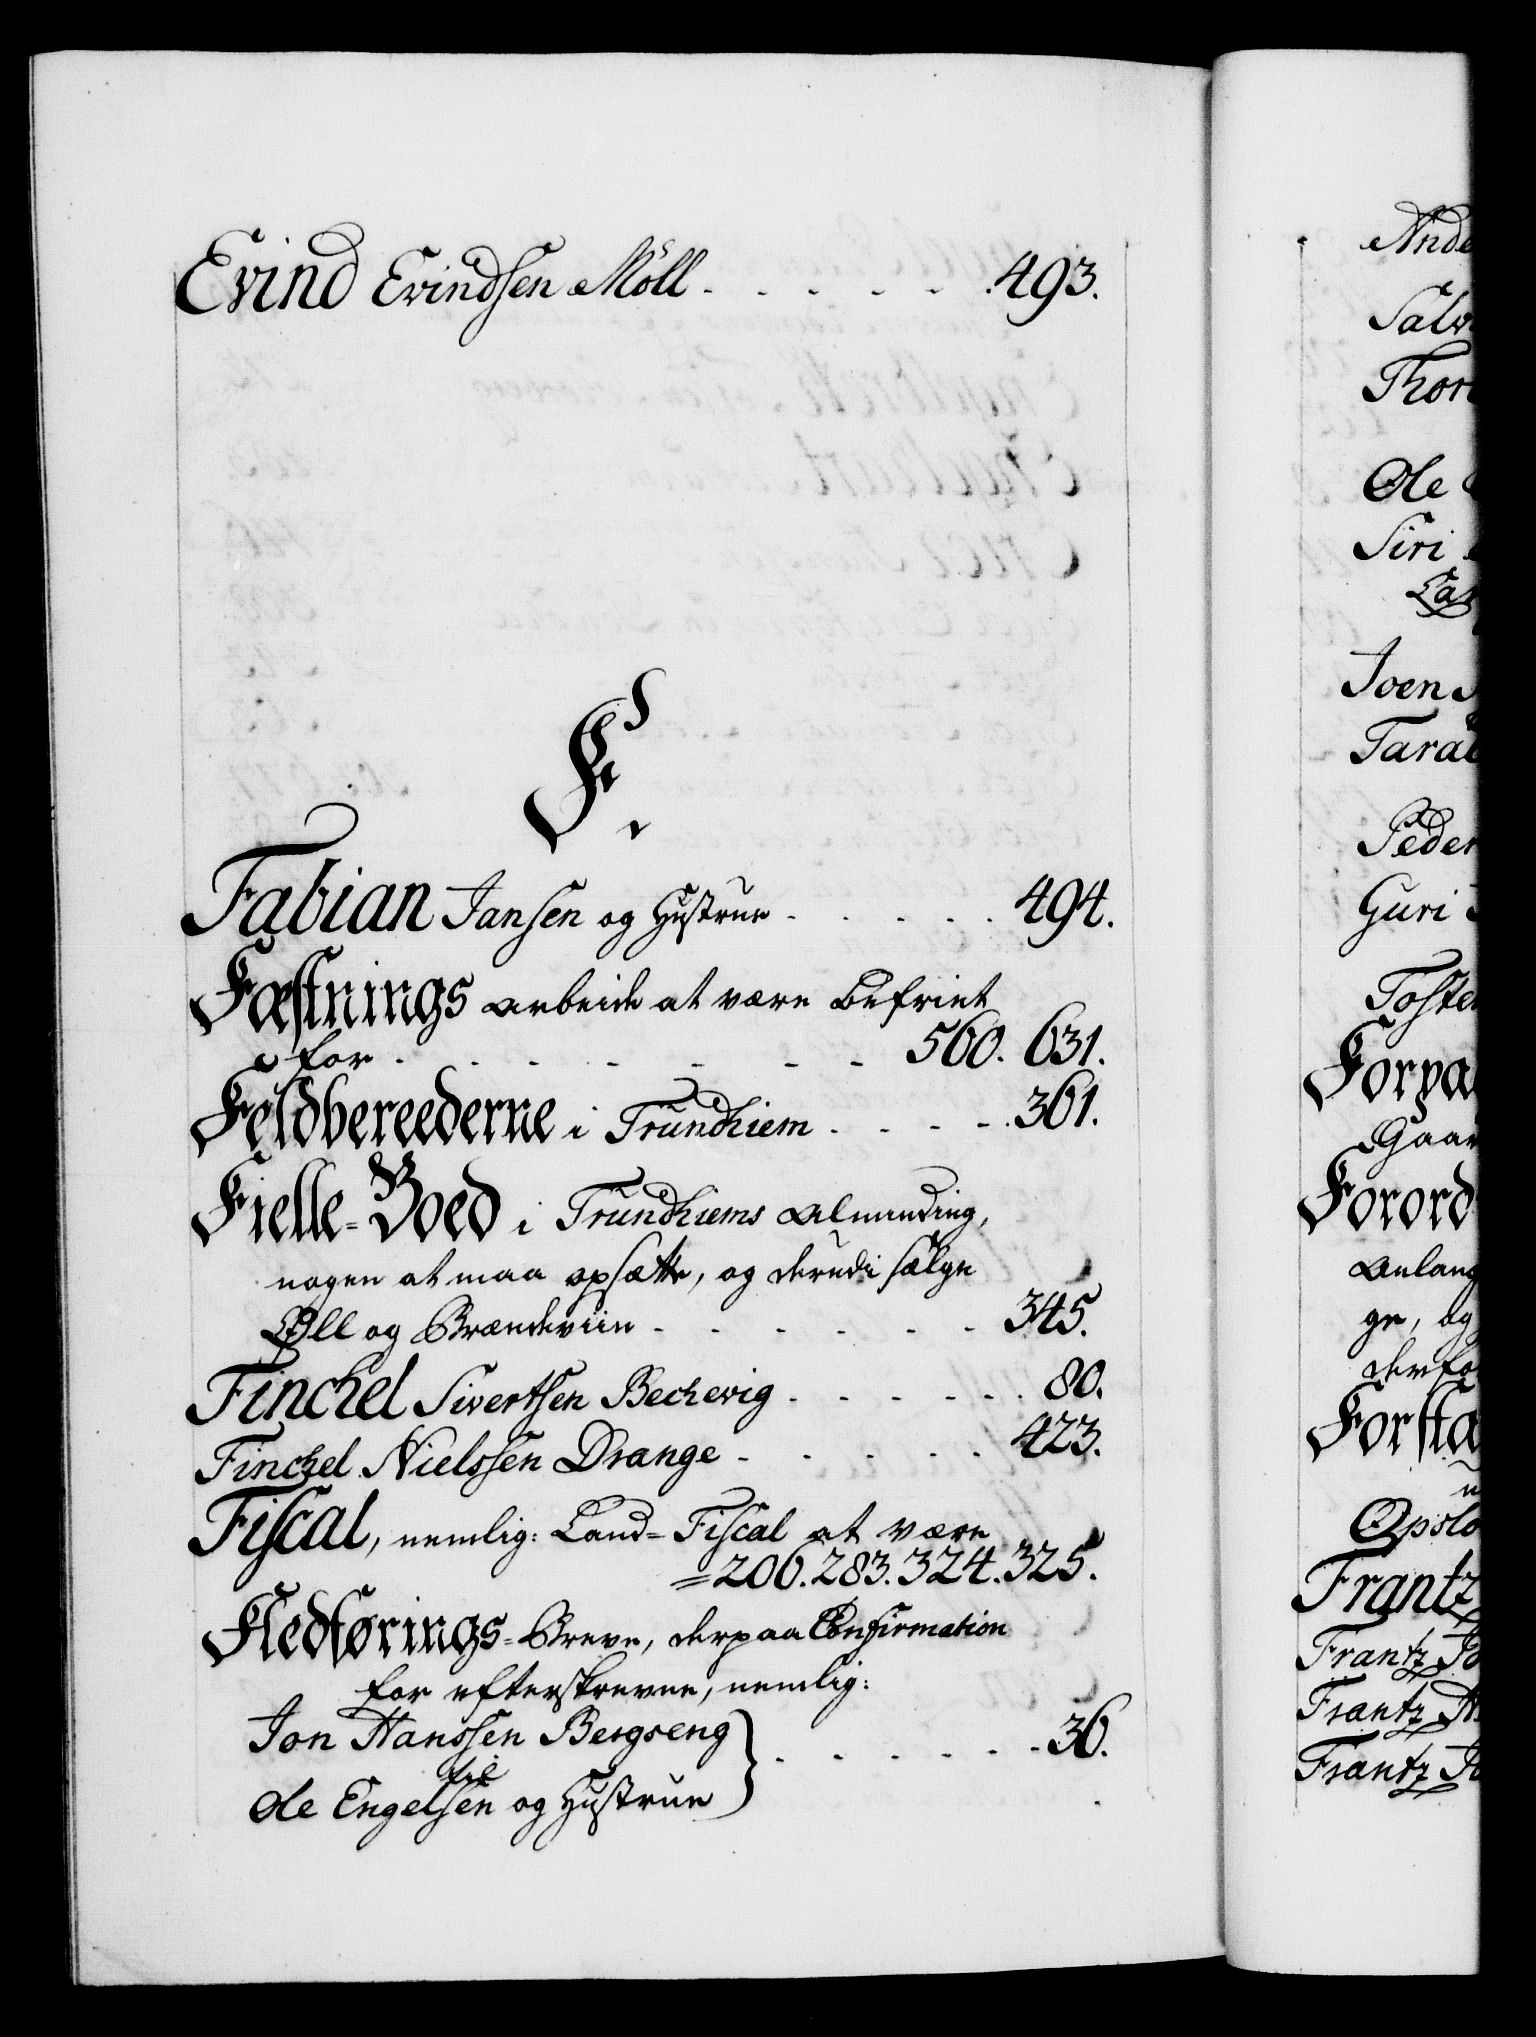 Evind Evindsen Möll - - - - - - 493.
F.
Fabian Jansen og Hustrue - - - - - 494.
Fæstnings arbeide at være befriet
for - - - - - - - 560. 631.
Feldbereederne i Trundhiem - - - - 361.
Fielle-Boed i Trundhiems Alminding,
nogen at maa opsætte, og derudi sælge
Øll og Brændeviin - - - - - - - 345.
Finchel Sivertsen Bechevig - - - - - 80.
Finchel Nielssen Drange - - - - - 423.
Fiscal, nemlig: Land-Fiscal at være
=206.283.324.325.
Fledførings-Breve, derpaa Confirmation
for efterskrevne, nemlig:
Jon Hanssen Bergseng
til
Ole Engelsen og Hustrue } - - - - - - 36.
Ande
Salv
Thor
Ole
Siri
Lar
Joen
Taral
Peder
Guri
Toste
Forpa
Gaar
Forord
anlang
ge, og
derfo
Forsta
Opslo
Frantz
Frantz Jo
Frantz
Frantz